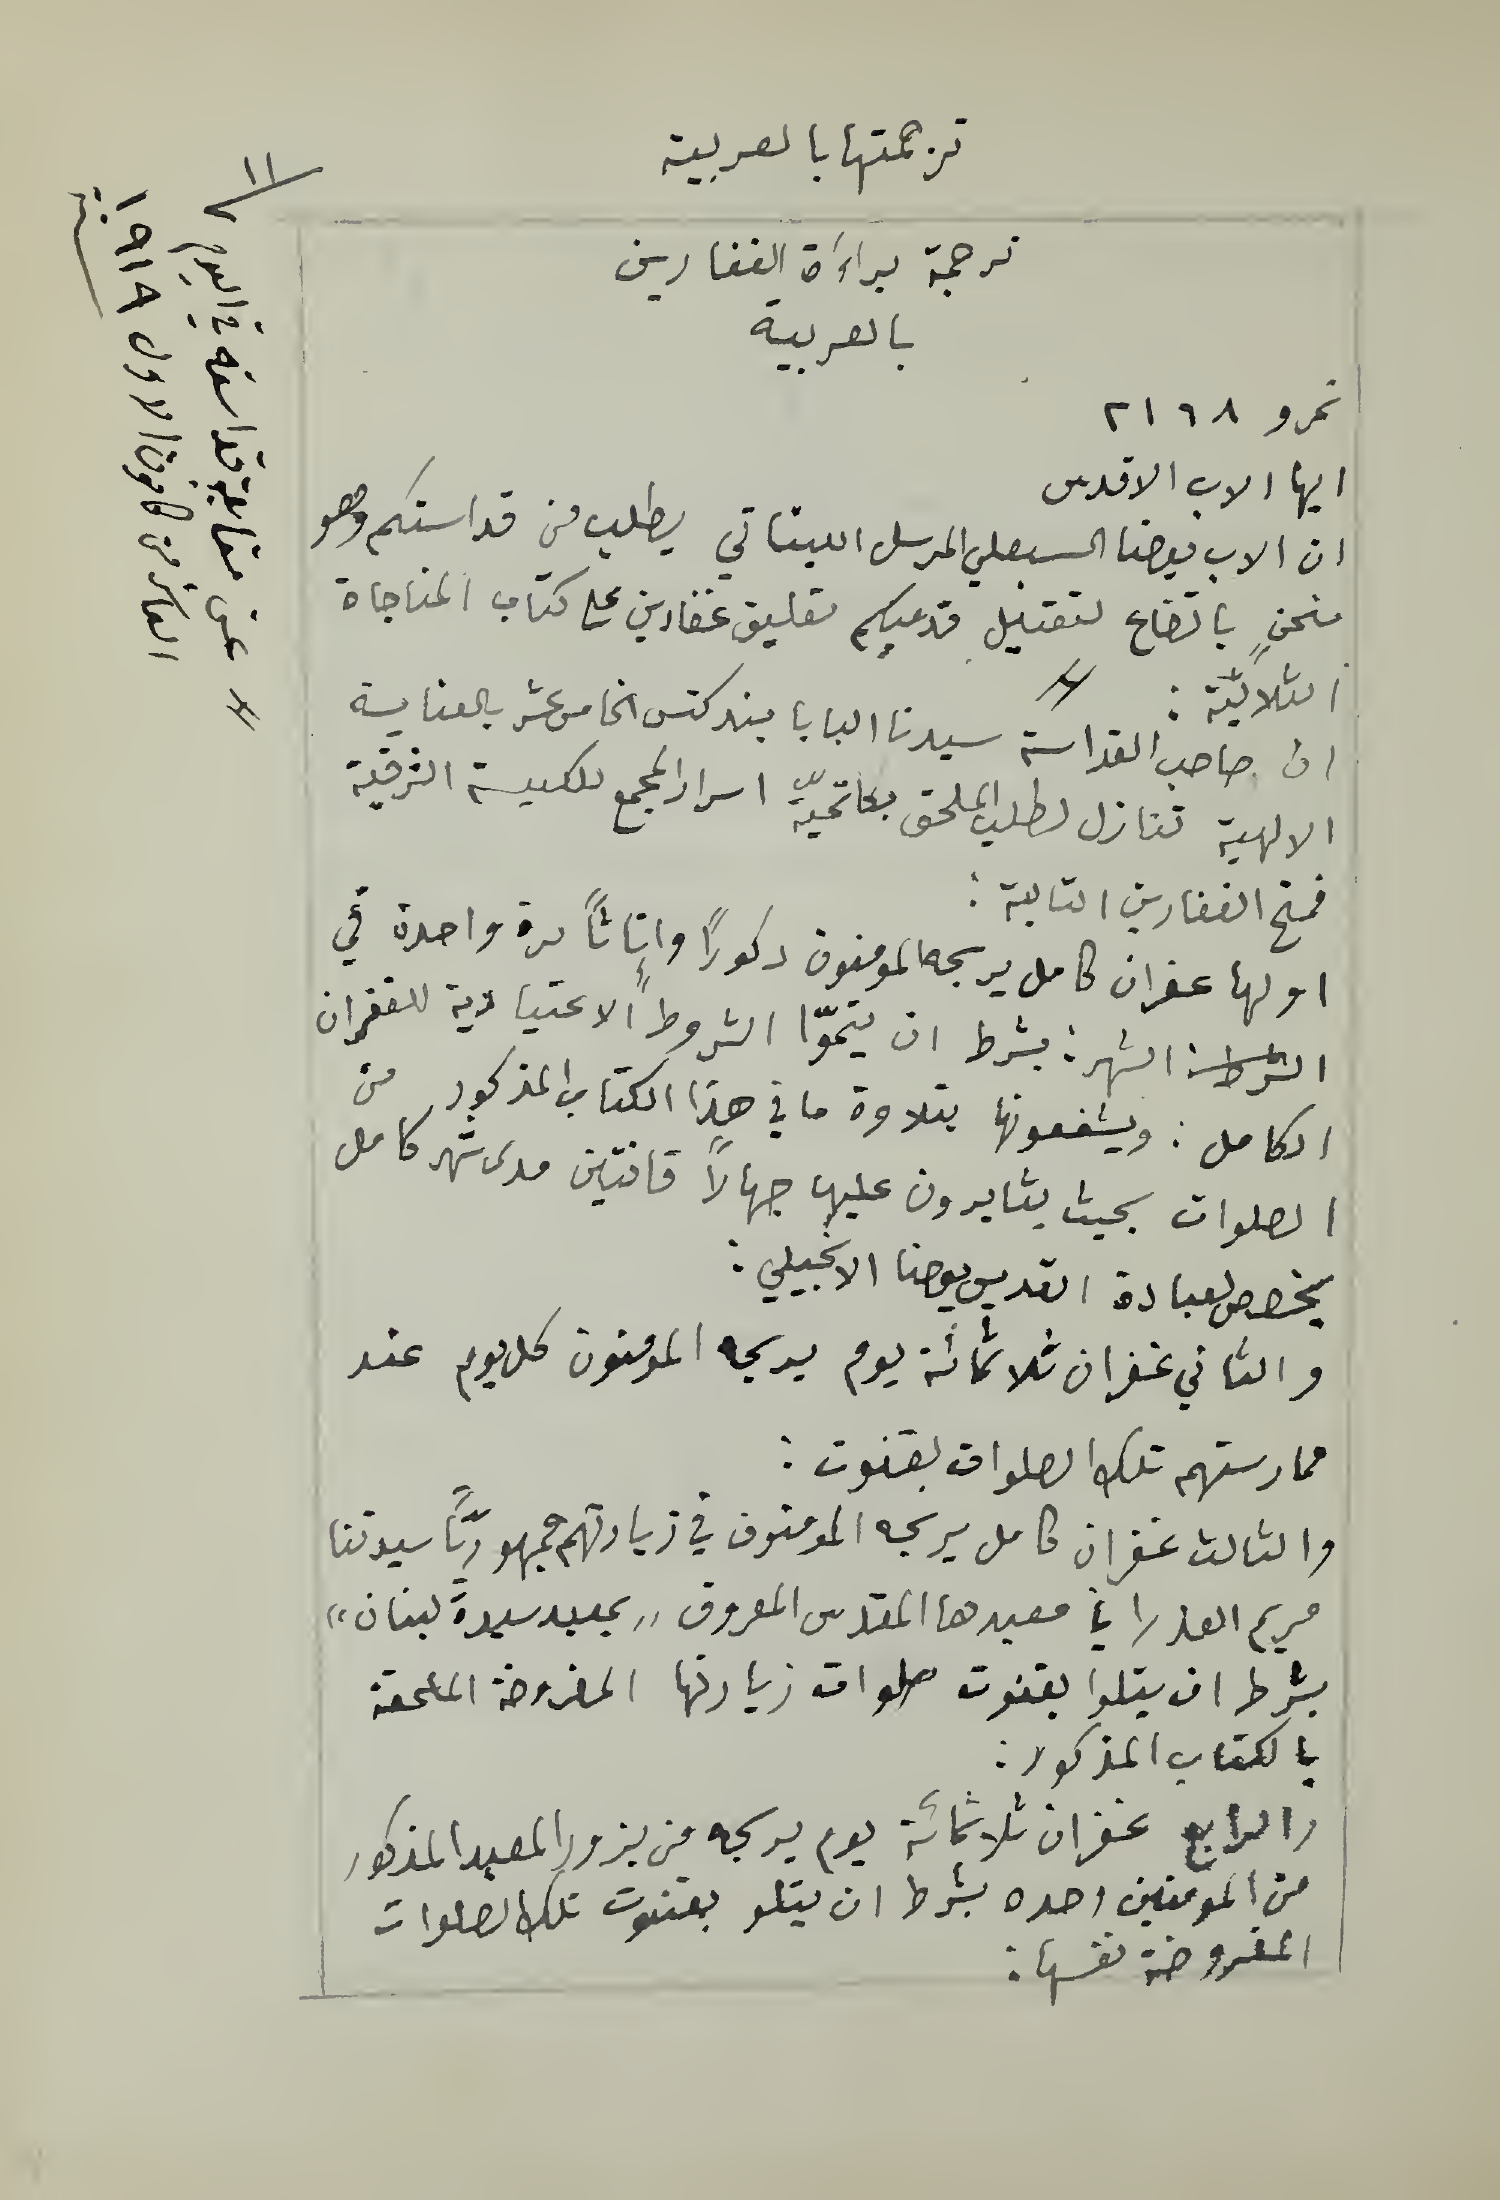 ترجمتها بالعربية
ترجمة براءة الغفارين
بالعربية
نمرو ٢١٩٨
ايها الاب الاقدس
ان الاب يوحنا السبعلي المرسل اللبناني يطلب من قداستكم وهو
منحنٍ باتضاع لتقبيل قدميكم تعليق غفارين على كتاب المناجاة
الثلاثية :
ان صاحب القداسة سيدنا البابا بندكتس الخامس عشر بالعناية
الالهية تنازل لطلب الملحق بكاتميّة اسرار المجمع للكنيسة الشرقية
فمنح الغفارين التالية :
اولها غفران كامل يربحه المومنون ذكورًا واناثًا مرة واحدة في
الشهر : بشرط ان يتمّوا الشروط الاعتيادية للغفران
الكامل : ويشفعونها بتلاوة ما في هذا الكتاب المذكور من
الصلوات بحيث يثابرون عليها جهالًا قانتين مدى شهر كامل
يخصص لعبادة القديس يوحنا الانجيلي :
والثاني غفران ثلاثمائة يوم يربحه المومنون كل يوم عند
ممارستهم تلك الصلوات بقنوت :
والثالث غفران كامل يربحه المومنون في زيارتهم جمهوريًّا سيدتنا
مريم العذرا في معبدها المقدس المعروف "بمعبد سيدة لبنان"
بشرط ان يتلوا بقنوت صلوات زيارتها المفروضة الملحقة
بالكتاب المذكور :
والرابع غفران ثلاثمائة يوم يربحه من يزور المعبد المذكور
من المومنين وحده بشرط ان يتلو بقنوت تلك الصلوات
المفروضة نفسها :
١١
عن مقابلة قداسته في اليوم
العاشر من كانون الاول ١٩١٨